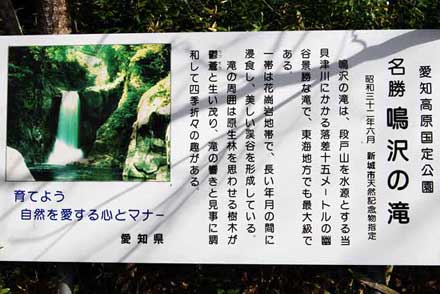 愛知高原国定公園
名勝 鳴沢の滝
昭和三十二年六月 新城市天然記念物指定
鳴沢の滝は、段戸山を水源とする当
貝津川にかかる落差十五メートルの幽
谷景勝な滝で、東海地方でも最大級で
ある。
一帯は花崗岩地帯で、長い年月の間に
浸食し、美しい渓谷を形成している。
滝の周囲は原生林を思わせる樹木が
鬱蒼と生い茂り、滝の響きと見事に調
和して四季折々の趣がある。
育てよう
自然を愛する心とマナー
愛知県